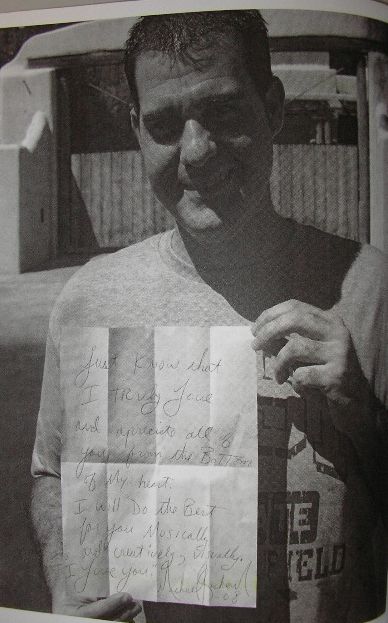 Just Know that
I TRULY Love
and apreciate all of
you from the BoTTom
of My heart.
I will Do the Best
for you Musically
and creatively, visually.
I love you
Michael Jackson
08
IELD